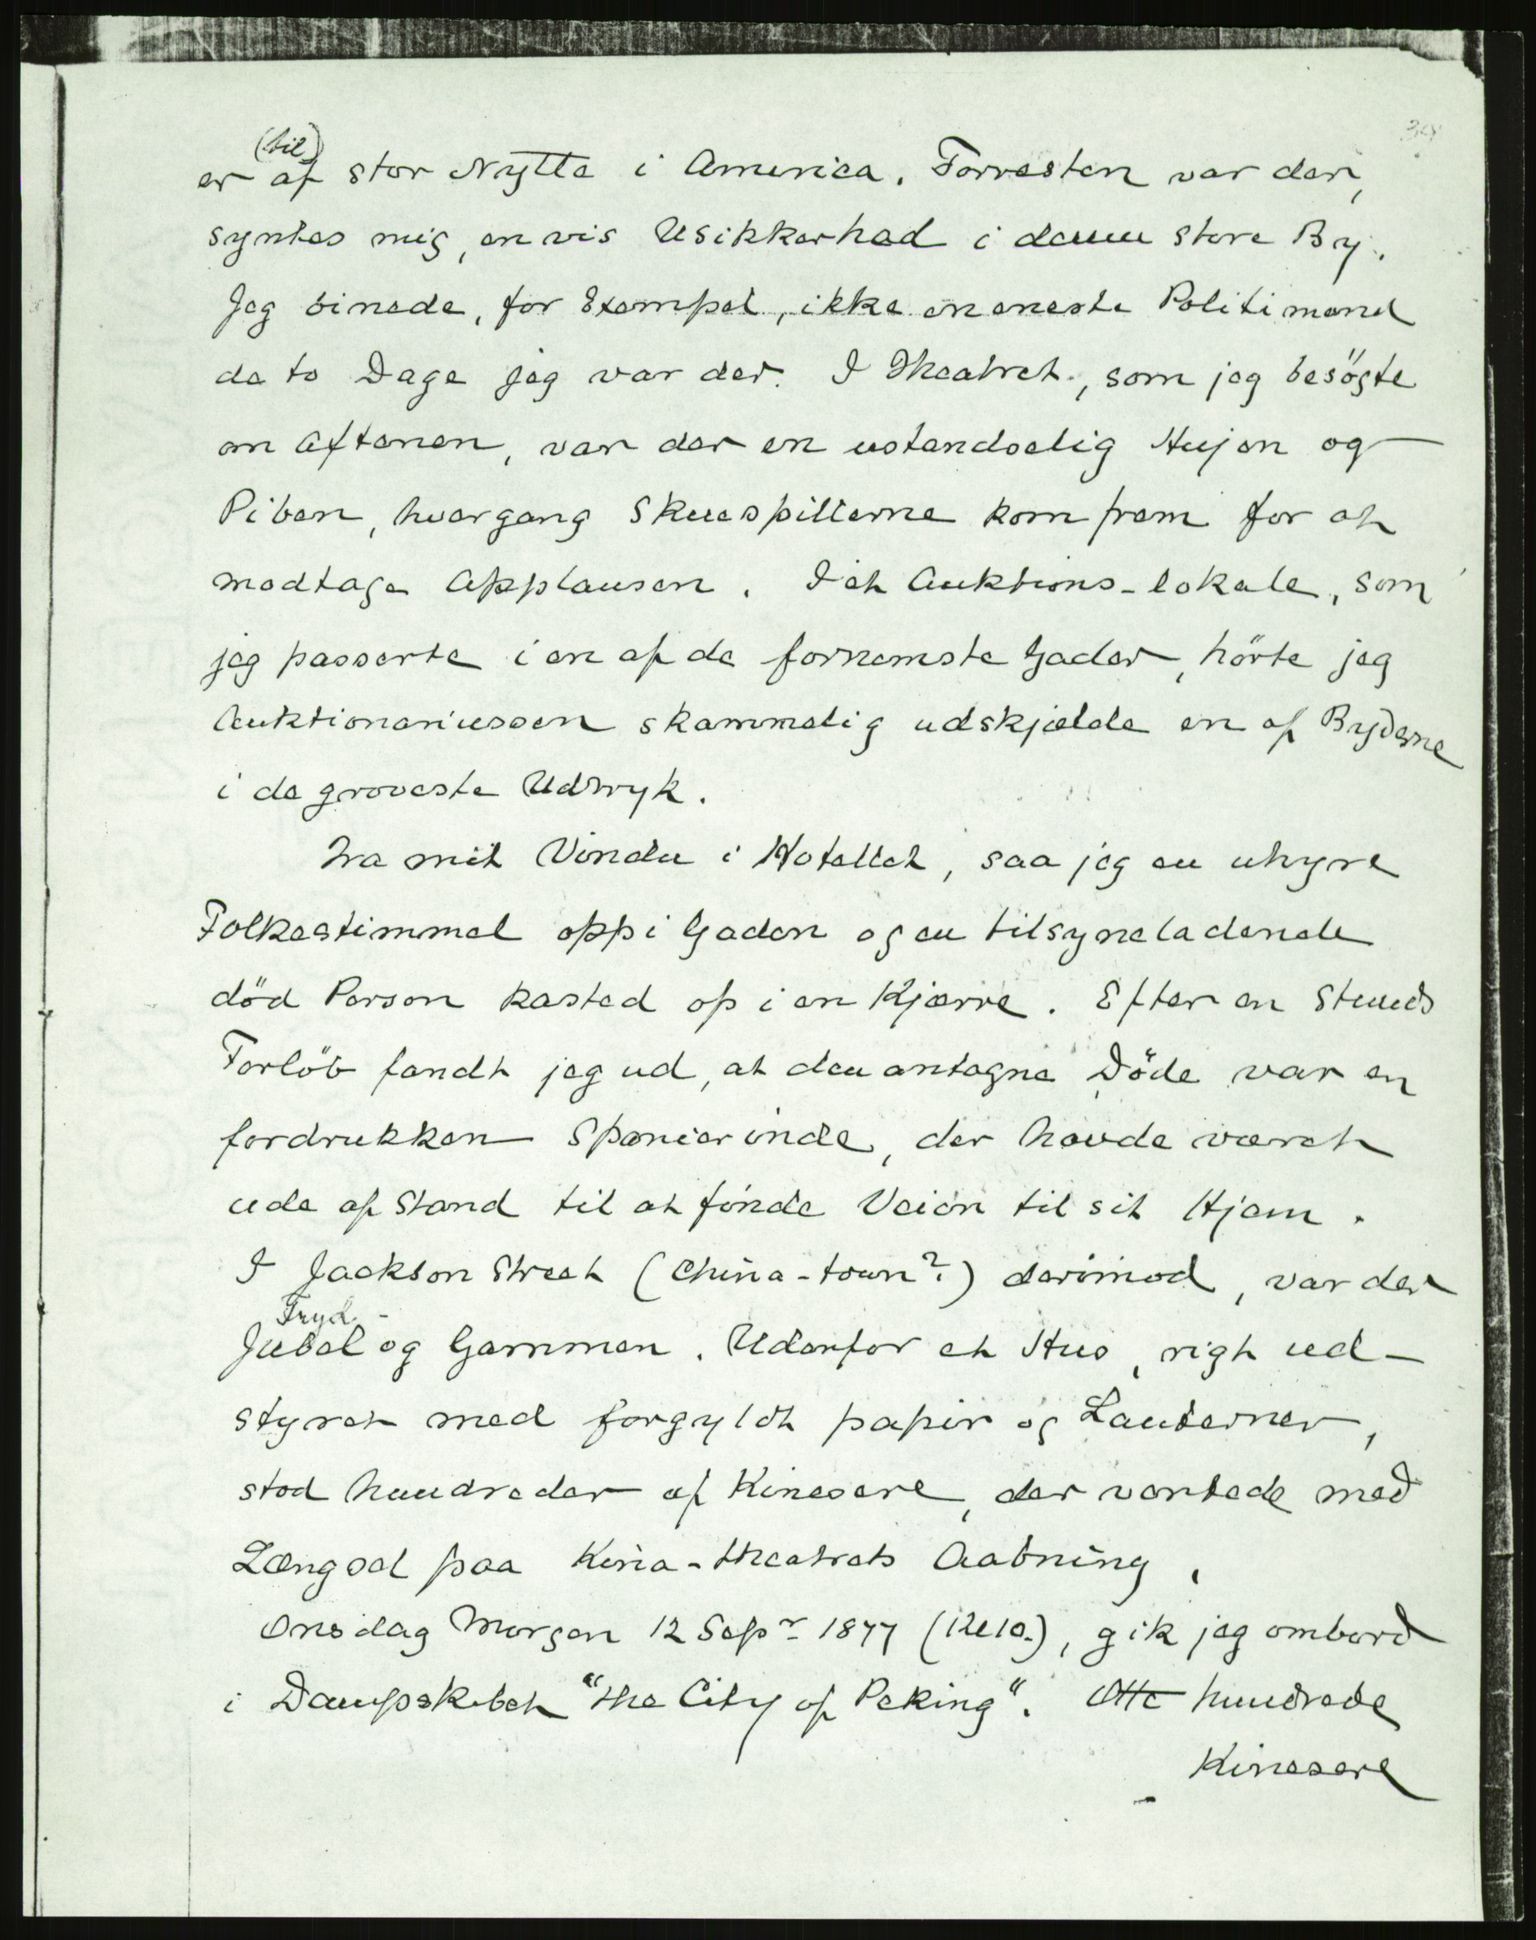 34
(til)
er af stor Nytte i America. Forresten var der,
syntes mig, en vis Usikkerhed i denne store By.
Jeg öinede, for Exempel, ikke en eneste Politimand
de to Dage jeg var der. I Theatret, som jeg besögte
om Aftenen, var der en ustandselig Hujen og
Piben, hvergang Skuespillerne kom frem for at
modtage Applausen. I et Auktions-lokale, som
jeg passerte i en af de fornemste Gader, hörte jeg
Auktionariussen skammelig udskjælde en af Byderne
i de groveste Udtryk.
Fra mit Vindu i Hotellet, saa jeg en uhyre
Folkestimmel opp i Gaden og en tilsyneladende
död Person kasted op i en Kjærre. Efter en Stunds
Forlöb fandt jeg ud, at den antagne Döde var en
fordrukken Spanierinde, der havde været
ude af Stand til at finde Veien til sit Hjem.
I Jackson Street (China-town?) derimod, var der
Fryd -
Jubel og Gammen. Udenfor et Hus, rigt ud-
styret med forgyldt papir og Lanterner,
stod hundreder af Kinesere, der ventede med
Længsel paa Kina-theatrets Aabning.
Onsdag Morgen 12 Sepr 1877 (Kl 10.), gik jeg ombord
i Dampskibet "the City of Peking". Otte hundrede
Kinesere